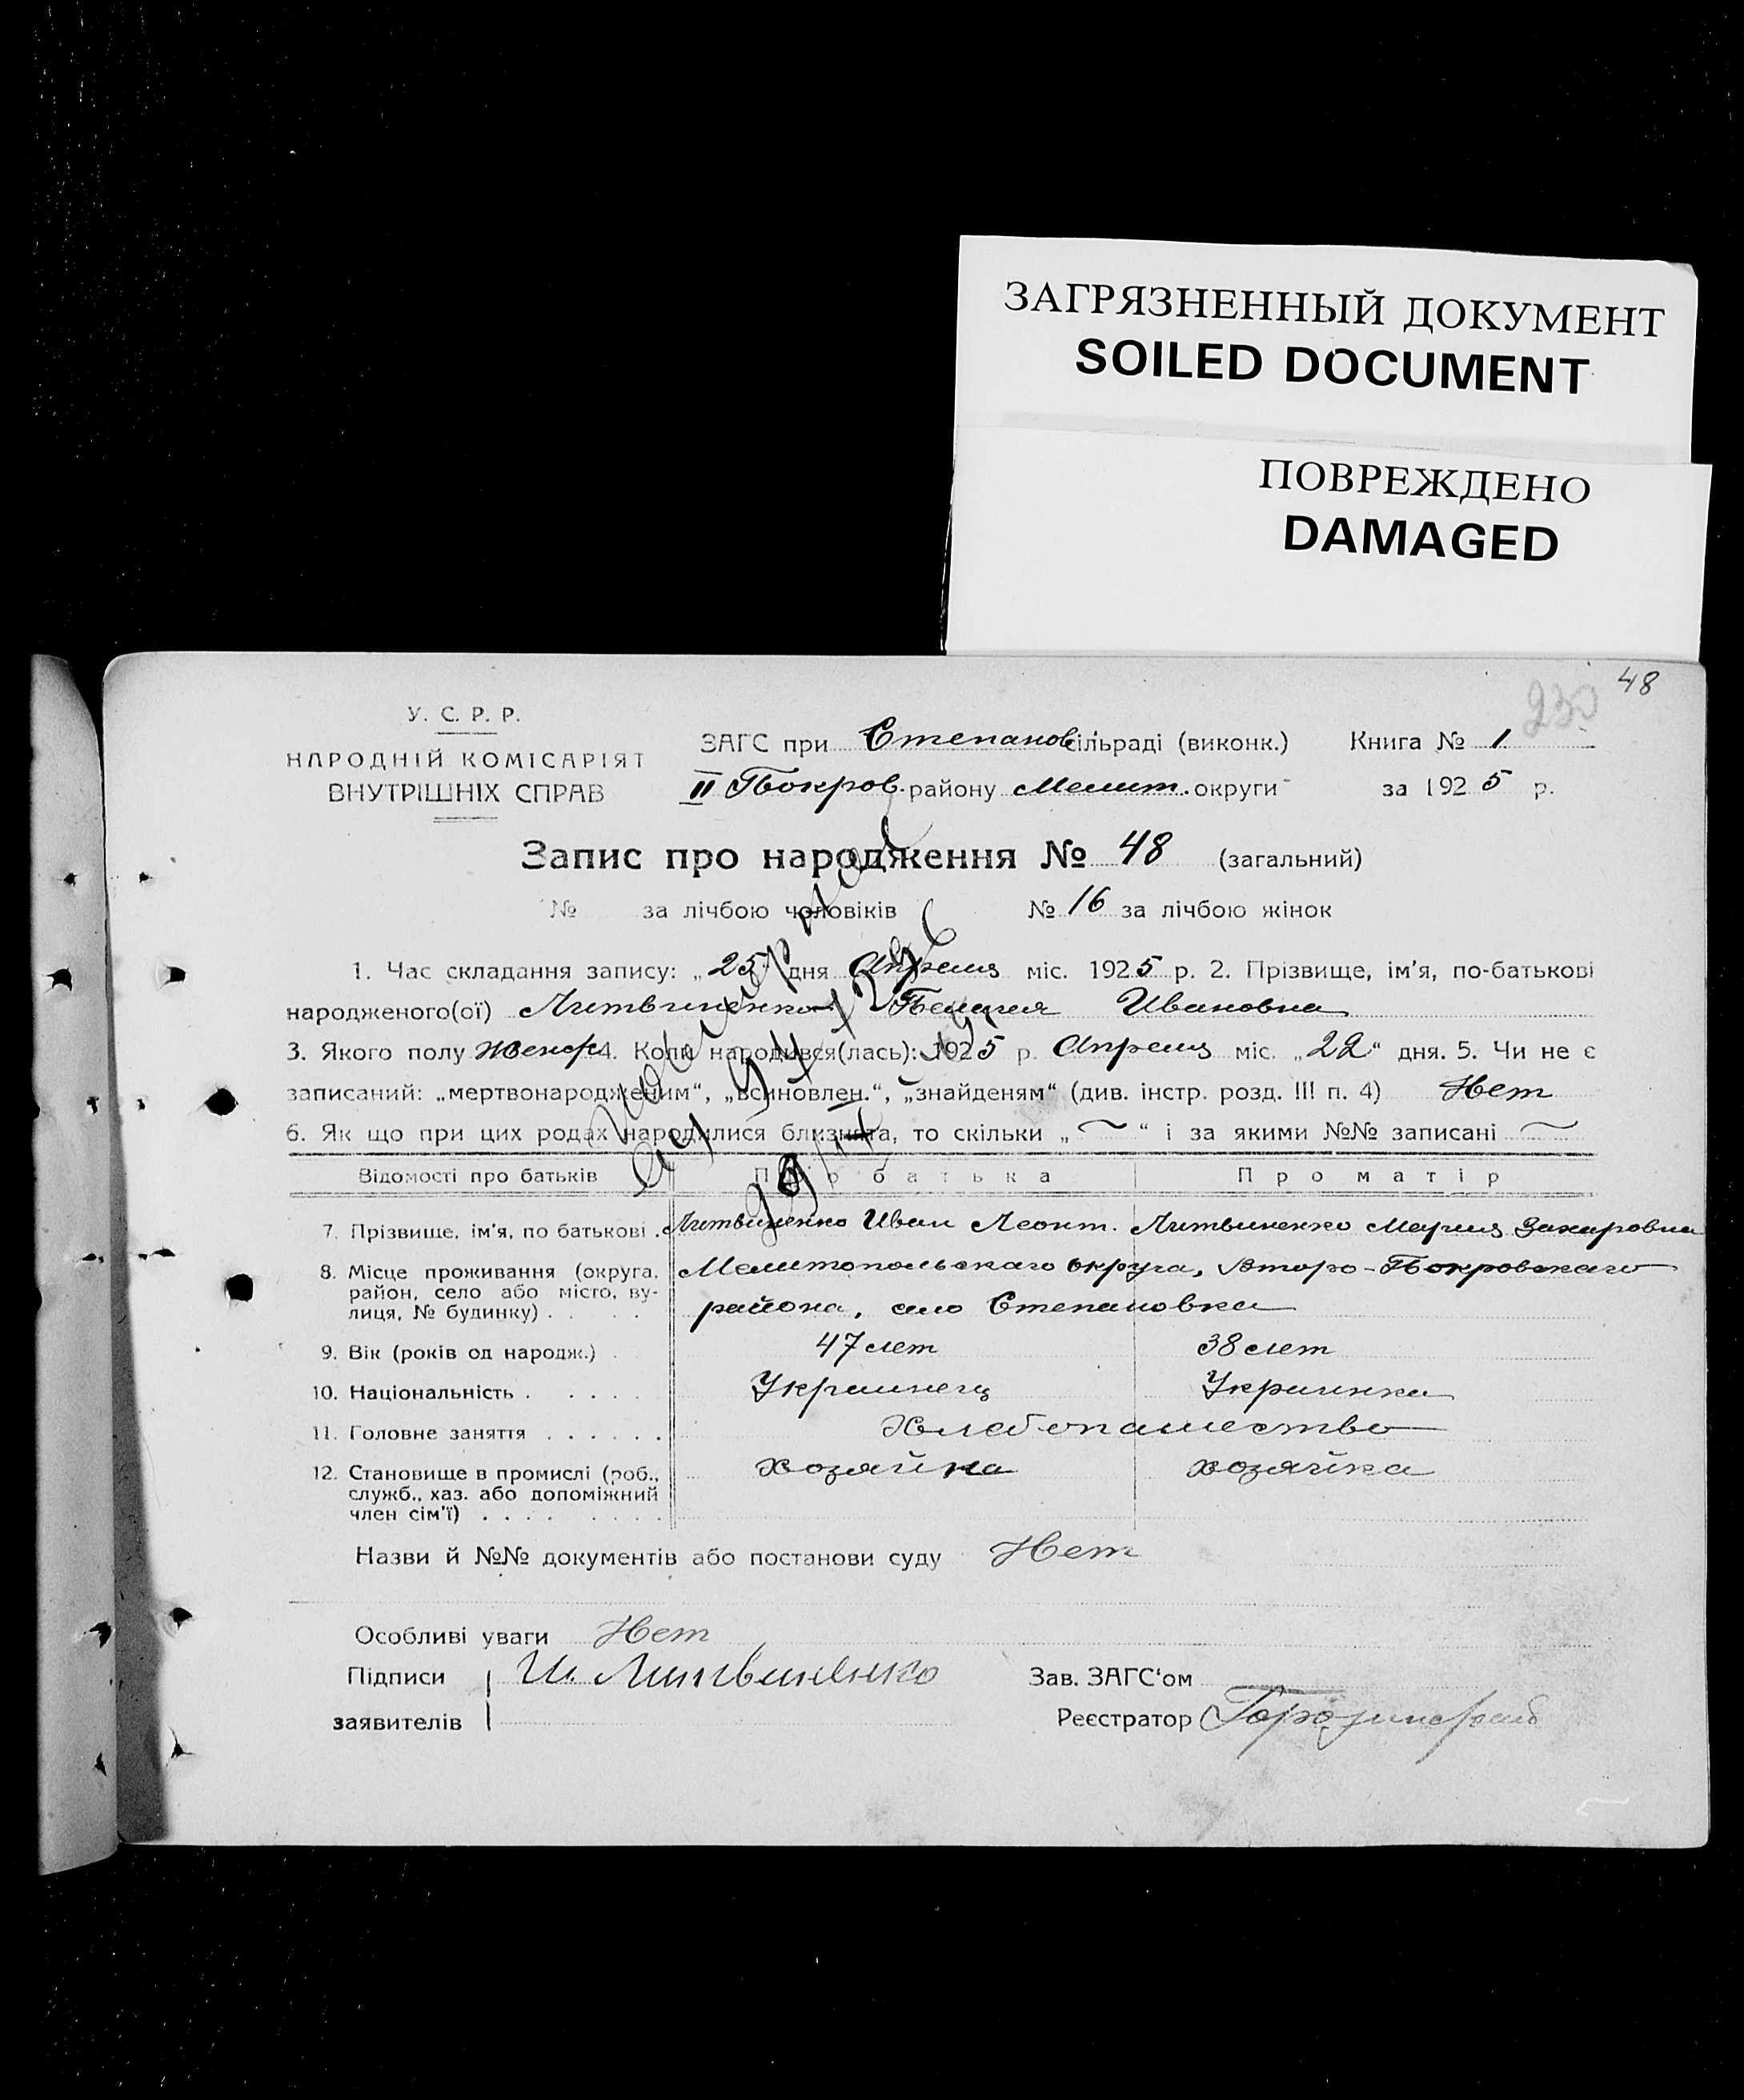 ЗАГРЯЗНЕННЫЙ ДОКУМЕНТ
SOILED DOCUMENT
ПОВРЕЖДЕНО
DAMAGED
48
230
У. С. Р. Р.
НАРОДНІЙ КОМІСАРІЯТ
ВНУТРІШНІХ СПРАВ
ЗАГС при Степанов. сільраді (виконк.) Книга № 1.
II Покров. району Мелит. округи за 1925 р.
Запис про народження № 48 (загальний)
№ за лічбою чоловіків № 16 за лічбою жінок
1. Час складання запису: „25" дня Апреля міс. 1925 р. 2. Прізвище, ім'я, по-батькові
народженого(ої) Литвиненко Пелагея Ивановна
3. Якого полу женск 4. Коли народився(лась): 1925 р. Апреля міс. „22" дня. 5. Чи не є
записаний: „мертвонародженим", „всиновлен.", „знайденям" (див. інстр. розд. III п. 4) Нет
6. Як що при цих родах народилися близнята, то скільки „~" і за якими №№ записані ~
Відомості про батьків Про батька Про матір
7. Прізвище, ім'я, по батькові . Литвиненко Иван Леонт. Литвиненко Мария Захаровна
8. Місце проживання (округа, район, село або місто, вулиця, № будинку) . . . . Мелитопольскаго округа, Второ-Покровскаго
района, село Степановка
9. Вік (років од народж.) 47 лет 38 лет
10. Національність . . . . . Украинец Украинка
11. Головне заняття . . . . . . Хлебопашество
12. Становище в промислі (роб., служб., хаз. або допоміжний член сім'ї) . . . . . . . . хозяйна хозяйка
Назви й №№ документів або постанови суду Нет
Особливі уваги Нет
Підписи И. Литвиненко Зав. ЗАГС'ом
заявителів Реєстратор